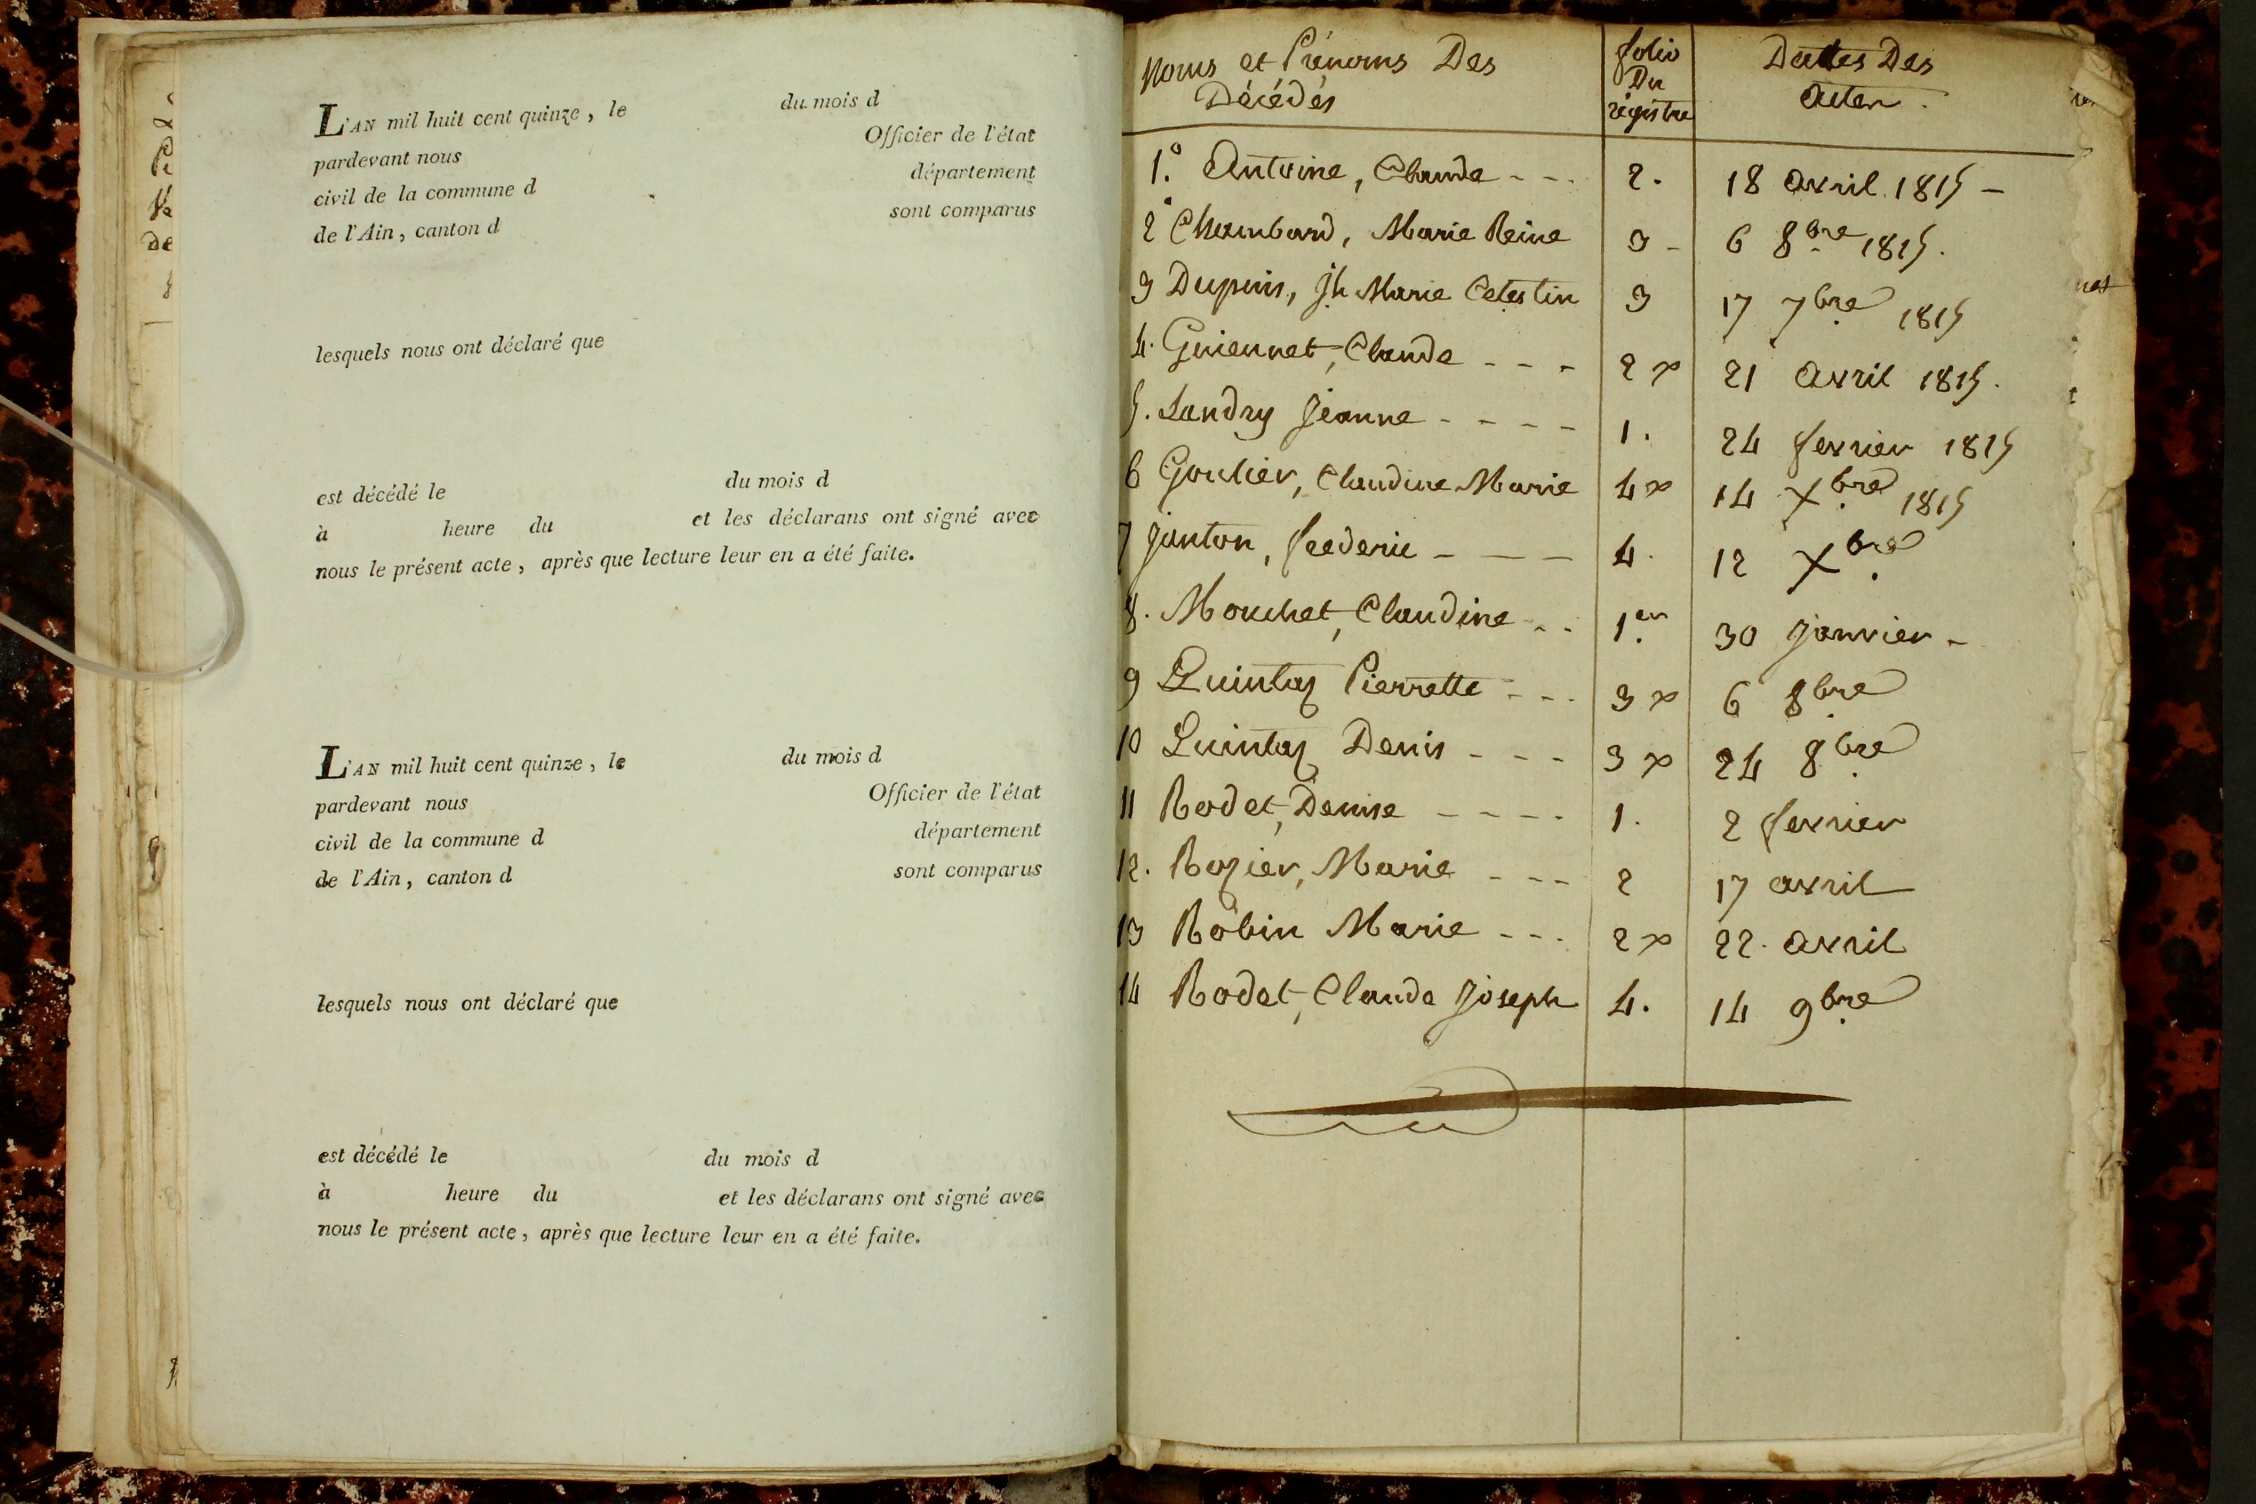 L'AN mil huit cent quinze, le du mois d
pardevant nous Officier de l'état
civil de la commune d département
de l'Ain, canton d sont comparus
lesquels nous ont déclaré que
est décédé le du mois d
à heure du et les déclarans ont signé avec
nous le présent acte, après que lecture leur en a été faite.
L'AN mil huit cent quinze, le du mois d
pardevant nous Officier de l'état
civil de la commune d département
de l'Ain, canton d sont comparus
lesquels nous ont déclaré que
est décédé le du mois d
à heure du et les déclarans ont signé avec
nous le présent acte, après que lecture leur en a été faite.
Noms et Prénoms Des
Décédés
folio
Du
régistre
Dattes Des
Actes.
1.º Antoine, Claude - - - 2. 18 avril 1815 -
2 Chambard, Marie Reine 3 - 6 8bre 1815.
3 Dupuis, Jh Marie Celestin 3 17 7bre 1815
4. Guiennet, Claude - - - 2 vº 21 avril 1815.
5. Landry Jeanne - - - - 1. 24 fevrier 1815
6 Goulier, Claudine Marie 4 vº 14 Xbre 1815
7 Janton, frederic - - - 4. 12 Xbre
8. Mouchet, Claudine - - 1er 30 janvier -
9 Quintaz Pierrette - - - 3 vº 6 8bre
10 Quintaz Denis - - - 3 vº 24 8bre
11 Rodet, Denise - - - - 1. 2 fevrier
12. Rozier, Marie - - - 2 17 avril
13 Robin Marie - - - 2 vº 22. avril
14 Rodet, Claude Joseph 4. 14 9bre